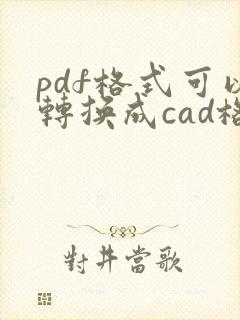 pdf格式可以
轉換成cad格
對井當歌